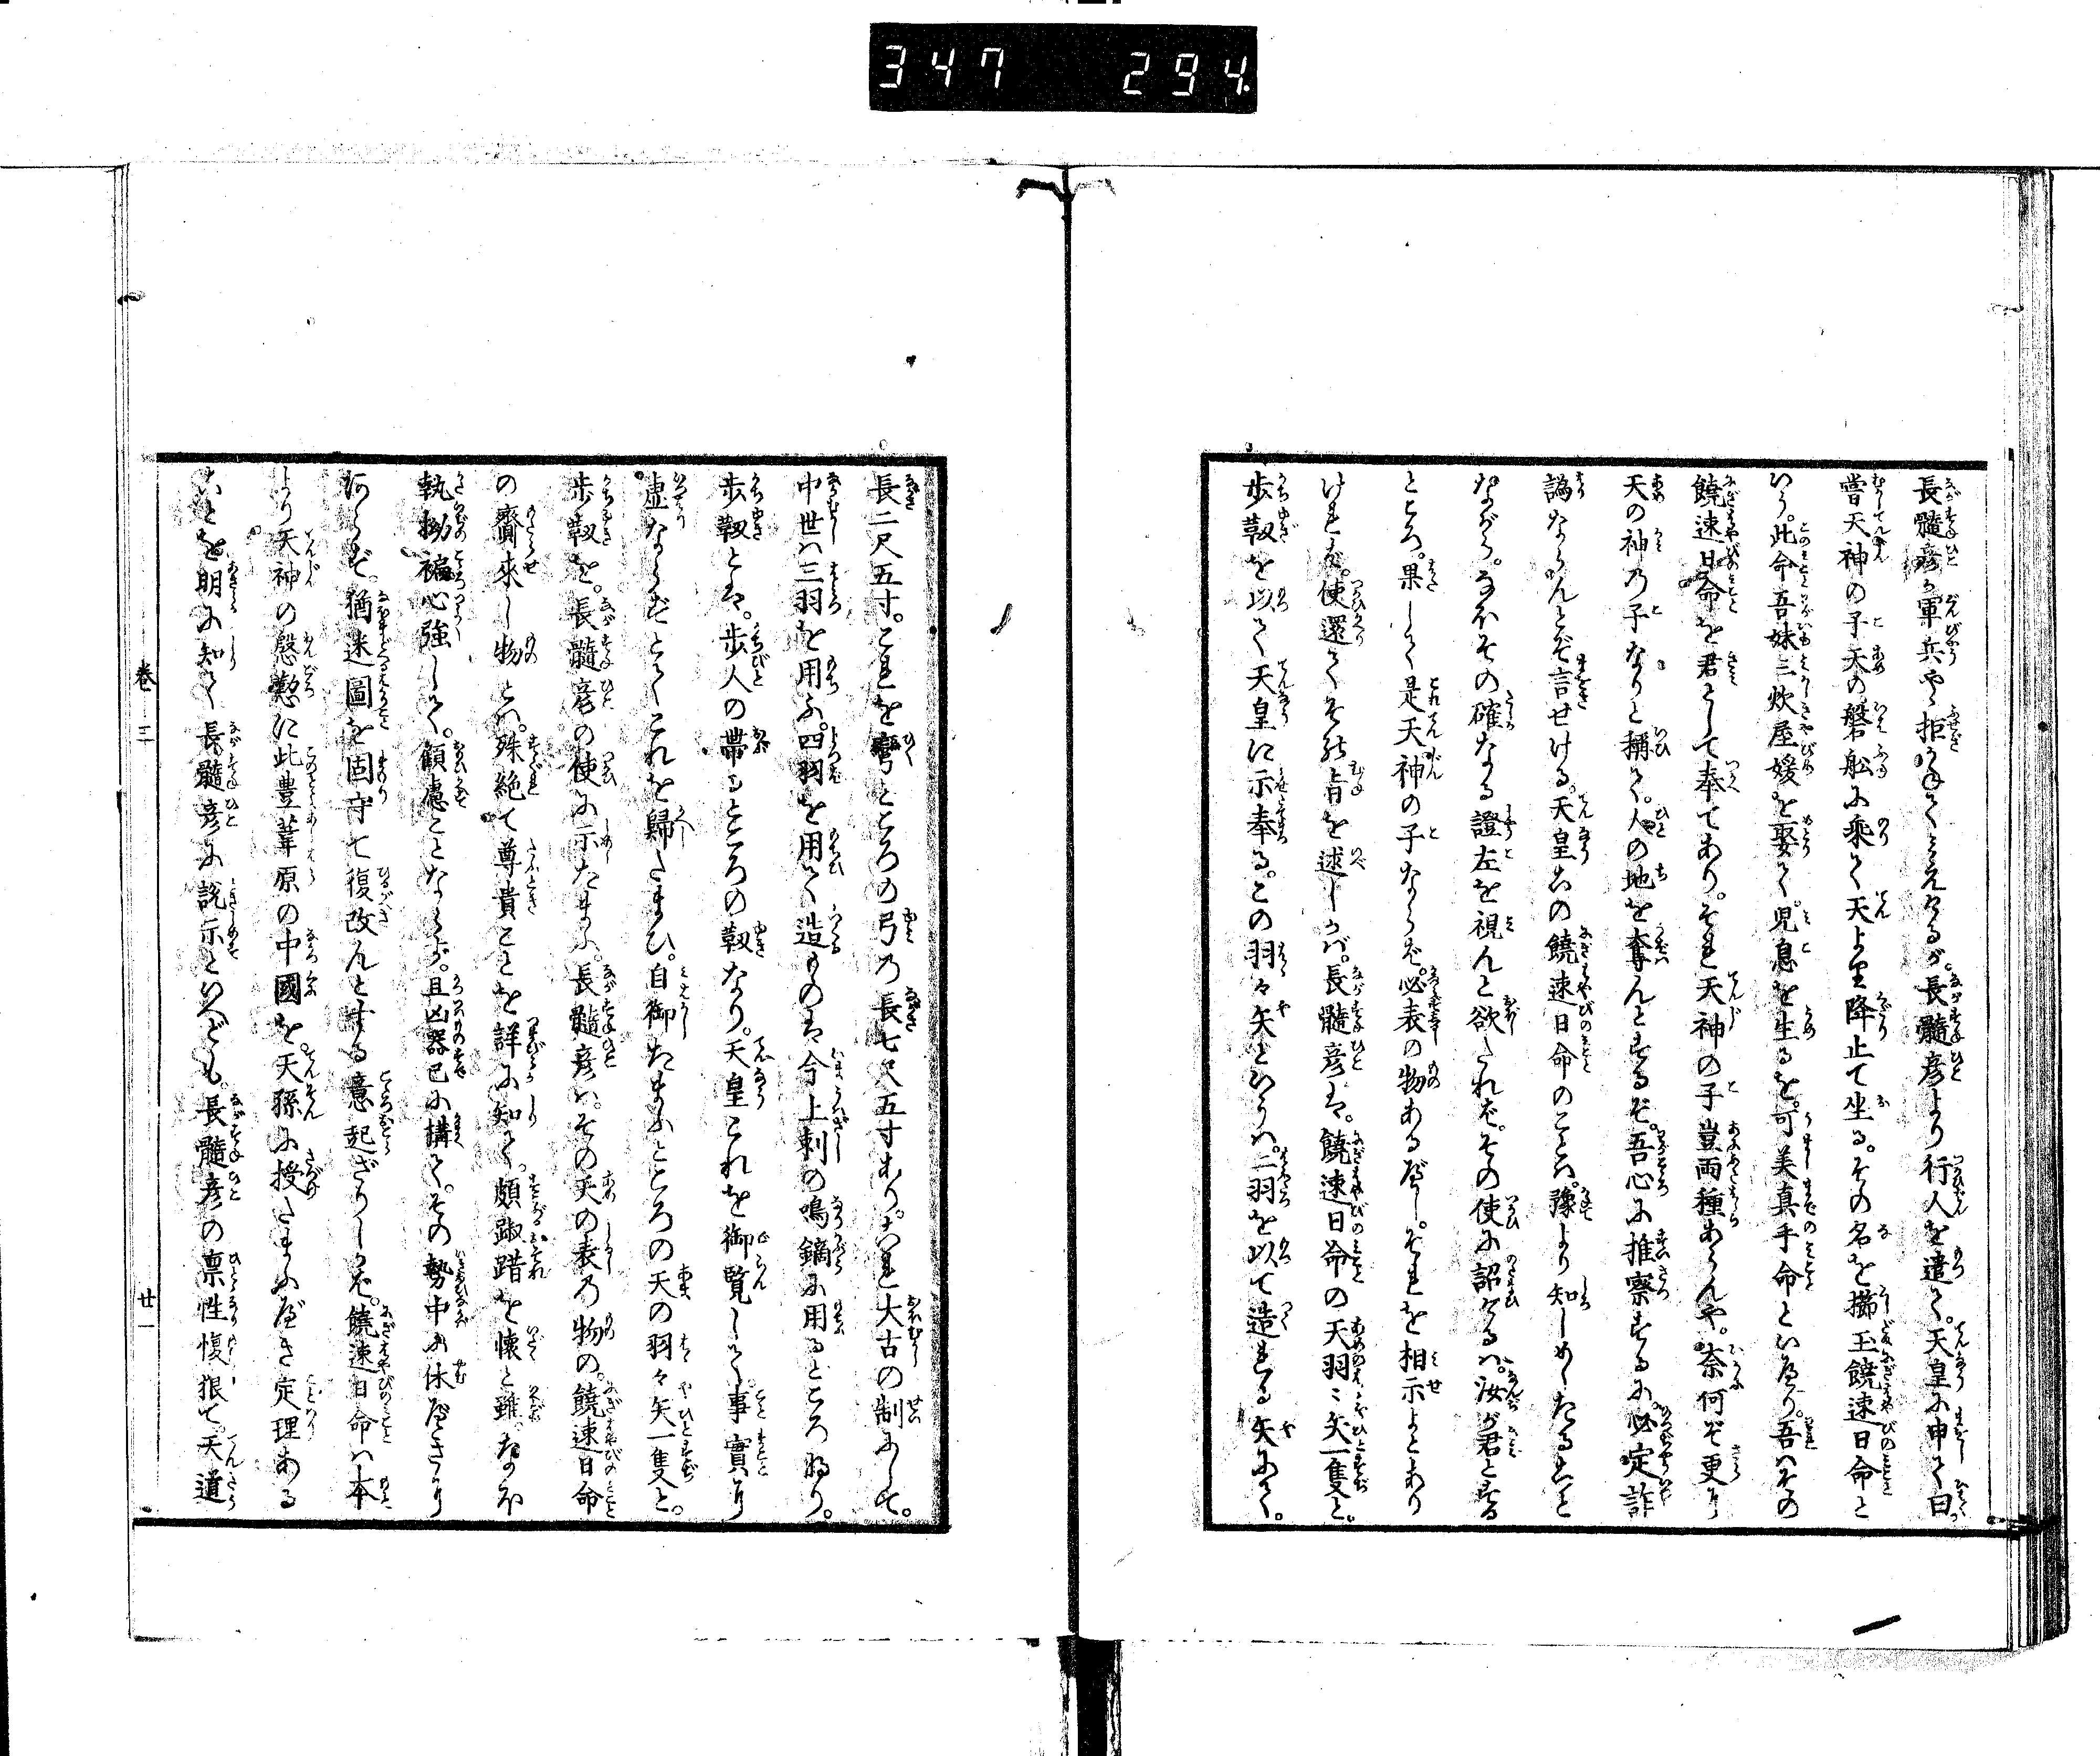 347 294.
長髄彦が軍兵やゝ拒かねてみえけるが。長髄彦より行人を遣て。天皇に申て曰
嘗天神の子天の磐舩に乘て天より降止て坐る。その名を櫛玉饒速日命と
いふ。此命吾妹三炊屋媛を娶て。児息を生るを。可美真手命といへり。吾ハその
饒速日命を君として奉てあり。それ天神の子豈兩種あらんや。奈何ぞ更に
天の神の子なりと稱て。人の地を奪んとするぞ。吾心に推察するに。必定詐
譌ならんとぞ言せける。天皇かの饒速日命のことハ。豫より知しめしたることと
ながら。なほその確なる證左を視んと欲されば。その使に詔けるハ。汝が君とする
ところ。果して是天神の子ならば。必表の物あるべし。それを相示よとあり
けれバ。使還てその旨を述しかバ。長髄彦ハ。饒速日命の天羽ゝ矢一隻と。
歩靫を以て天皇に示奉る。この羽々矢といふハ。二羽を以て造れる矢にて。
長二尺五寸。これを彎ところの弓の長七尺五寸あり。これ大古の制にして。
中世ハ三羽を用ふ。四羽を用て造ものハ今上刺の鳴鏑に用るところなり。
歩靫とハ。歩人の帶るところの靫なり。天皇これを御覧して。事實に
虚ならずとてこれを歸さまひ。自御たまふところの天の羽々矢一隻と。
歩靫を。長髄彦の使に示たまふ。長髄彦ハ。その天の表の物の。饒速日命
の齎來し物とハ。殊絶て尊貴ことを詳に知て。頗踧踖を懐と雖。なほ
執拗褊心強して。顧慮ことなくバ。且凶器已に構て。その勢中に休べきに
あらず。猶迷圖を固守て復改んとする意起ざりしかば。饒速日命ハ本
より天神の慇懃に此豊葦原の中國を。天孫に授さまふべき定理ある
ことを明に知て長髄彦に説示といへども。長髄彦の禀性愎狠て。天道
卷三
廿一